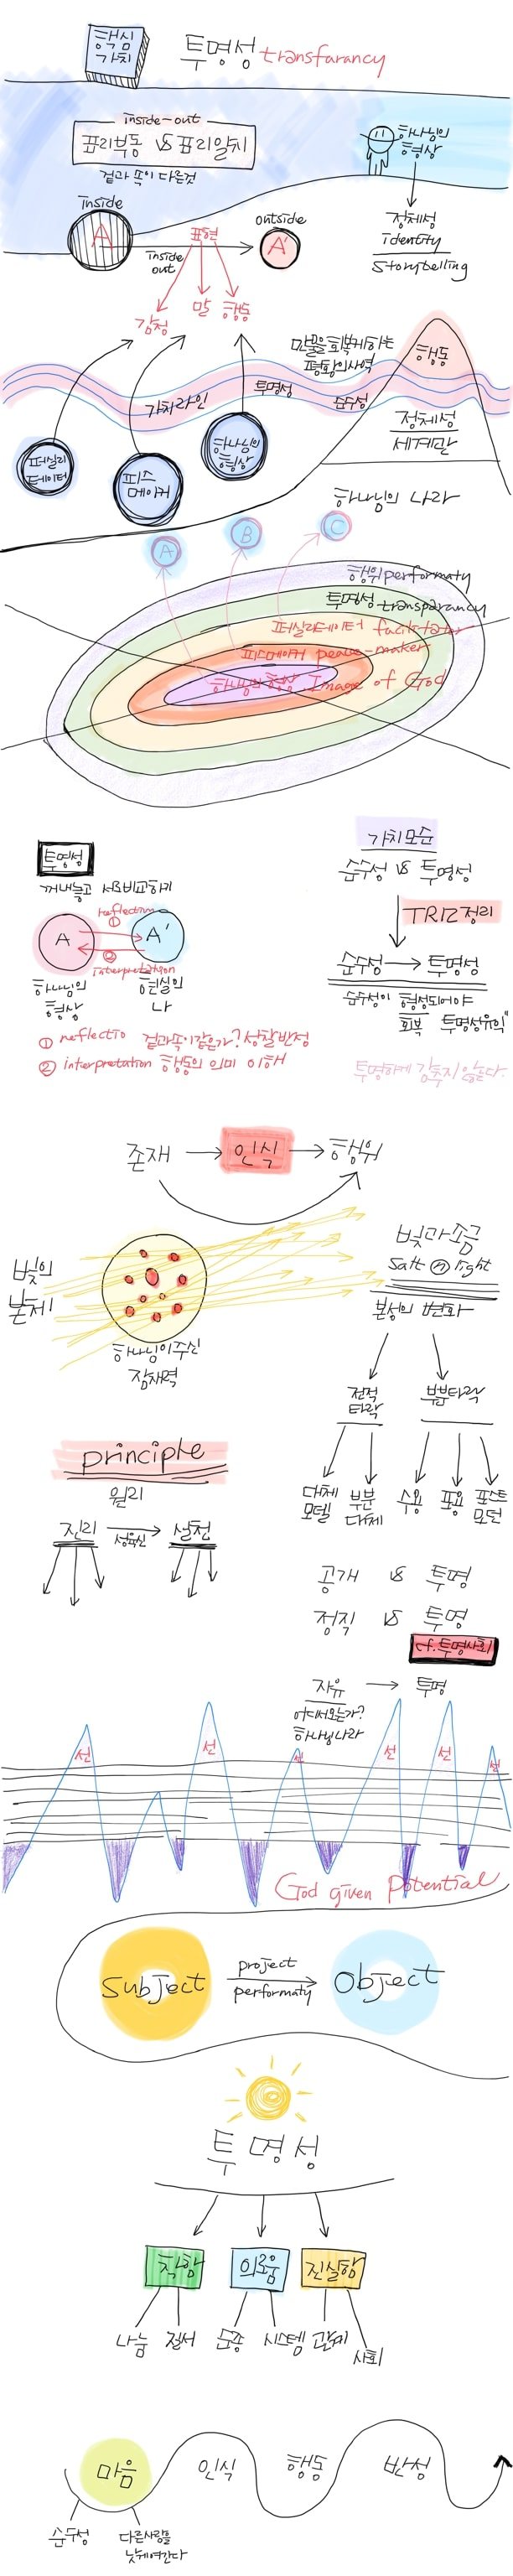 핵심
가치
투명성 transfarancy
inside-out
표리부동 VS 표리일치
겉과 속이 다른것
하나님의
형상
inside
A
표현
inside
out
outside
A'
정체성
identity
storytelling
감정
말
행동
만물을 회복케하는
평화의사역
행동
가치라인
투명성
순수성
정체성
세계관
퍼실리
테이터
피스
메이커
하나님의
형상
하나님의 나라
A
B
C
행위performaty
투명성 transparancy
퍼실리테이터 facilitator
피스메이커 peace-maker
하나님의 형상, Image of God
투명성
꺼내놓고 서로비교하기
A
reflection
①
②
interpretation
A'
하나님의
형상
현실의
나
① reflectio 겉과속이같은가? 성찰반성
② interpretation 행동의 의미 이해
가치모순
순수성 VS 투명성
TRIZ정리
순수성 → 투명성
순수성이 형성되어야
회복 투명성유익"
투명하게 감추지 않는다.
존재 → 인식 → 행위
빛의
본체
하나님이주신
잠재력
빛과소금
Salt light
본성의 변화
전적
타락
부분타락
대체
모델
부분
대체
수용
포용
포스트
모던
principle
원리
진리 → 실천
성육신
공개 VS 투명
정직 VS 투명
cf. 투명사회
자유 → 투명
어디서오는가?
하나님나라
선
선
선
선
선
선
God given Potential
Subject
project
performaty
Object
투명성
착함
의로움
진실함
나눔
질서
순종
시스템
관계
사회
마음
인식
행동
반성
순수성
다른사람을
낫게여긴다